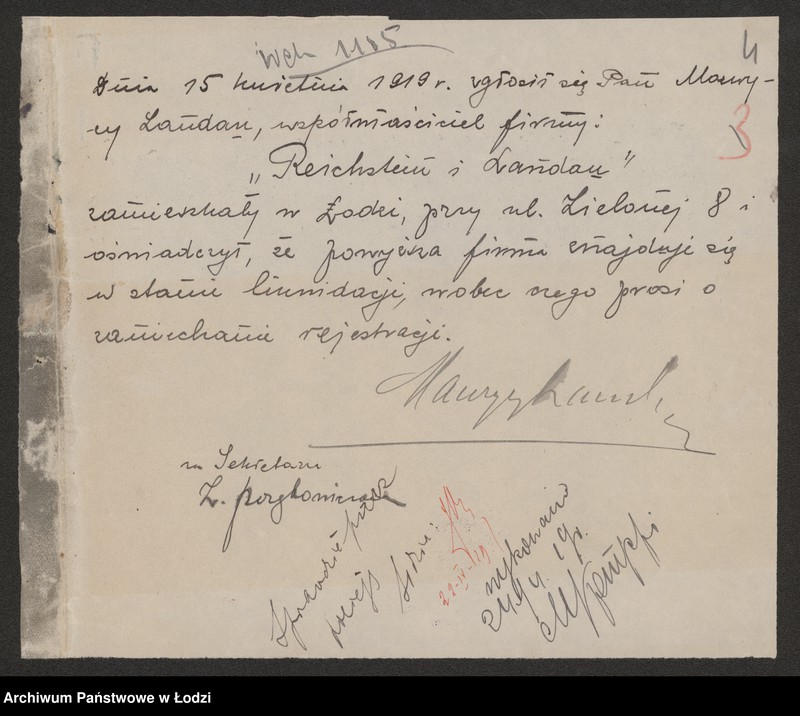 Wch 1185
4
3
Dnia 15 kwietnia 1919 r. zgłosił się Pan Maury-
cy Landau, współwłaściciel firmy:
„Reichstein i Landau"
zamieszkały w Łodzi, przy ul. Zielonej 8 i
oświadczył, że powyższa firma znajduje się
w stanie likwidacji, wobec czego prosi o
zaniechanie rejestracji.
Maurycy Landau
za Sekretarza
Sprawdzić przez
policję
22-IV-19
wykonano
24/IV 19 r.
Archiwum Państwowe w Łodzi